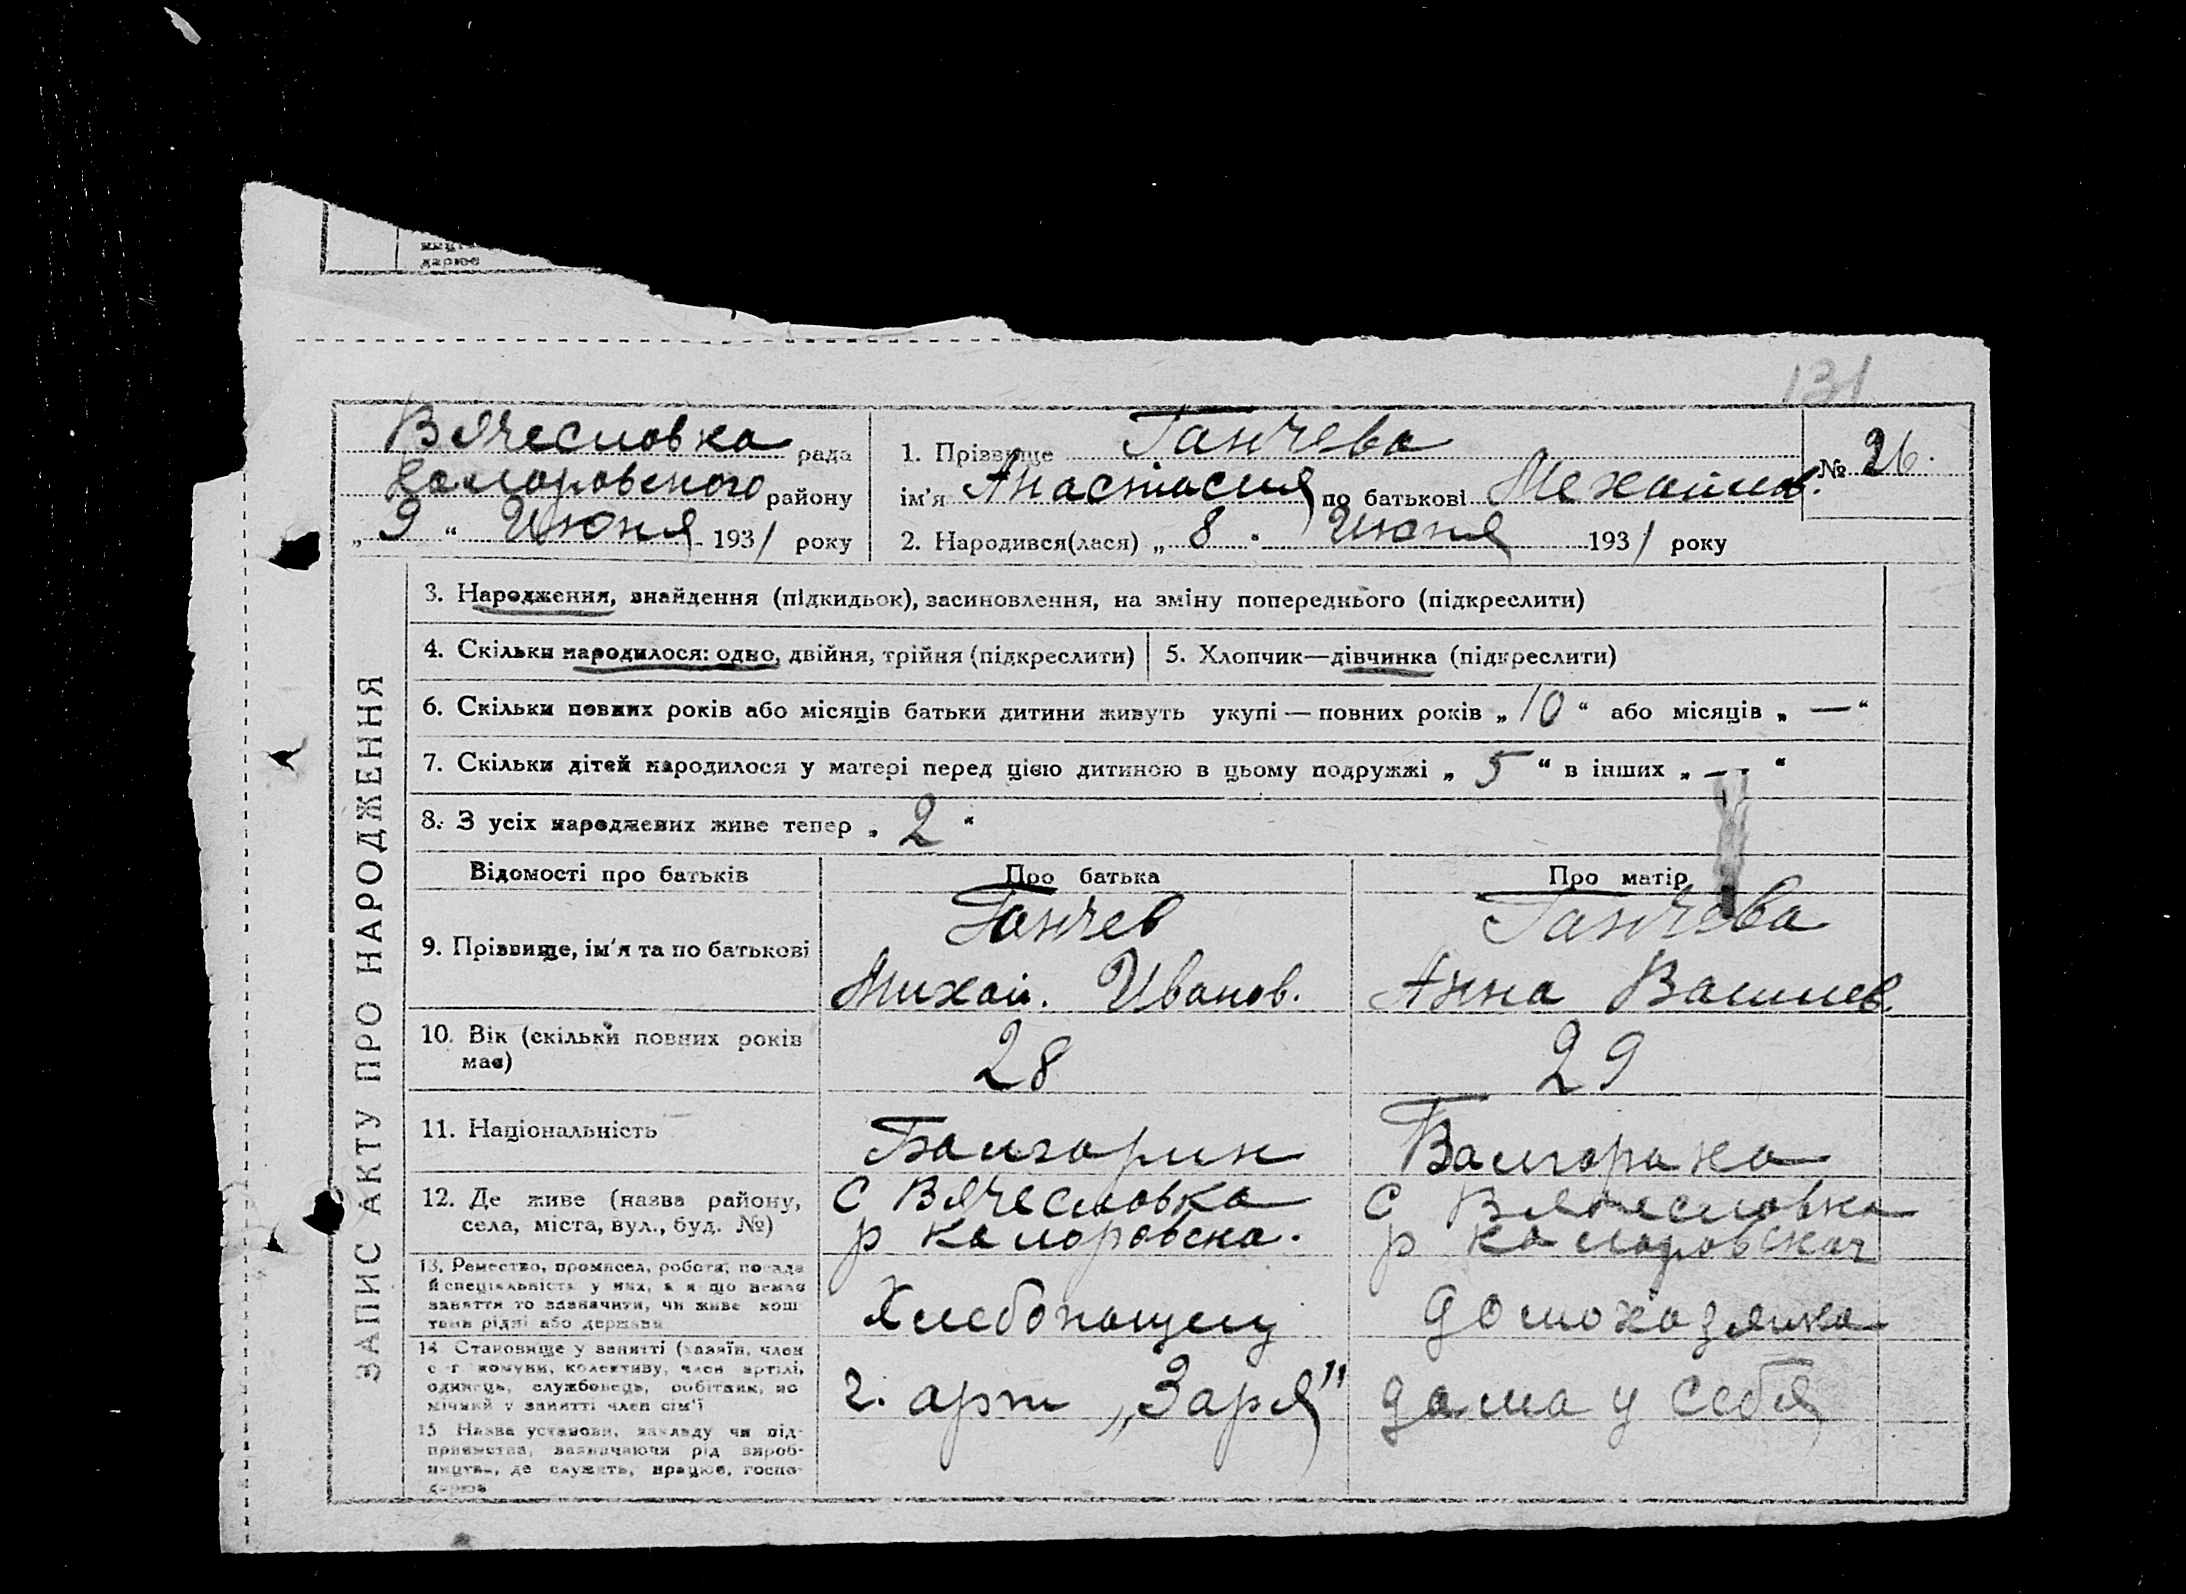 дарює
131
Вячесловка рада
Коларовского району
„ 9 “ Июня 1931 року
1. Прізвище Ганчева
ім'я Анастасия по батькові Мехайлов.
№ 26.
2. Народився(лася) „ 8 “ Июня 1931 року
ЗАПИС АКТУ ПРО НАРОДЖЕННЯ
3. Народження, знайдення (підкидьок), засиновлення, на зміну попереднього (підкреслити)
4. Скільки народилося: одно, двійня, трійня (підкреслити)
5. Хлопчик—дівчинка (підкреслити)
6. Скільки повних років або місяців батьки дитини живуть укупі — повних років „ 10 “ або місяців „ — “
7. Скільки дітей народилося у матері перед цією дитиною в цьому подружжі „ 5 “ в інших „ — “
8. З усіх народжених живе тепер „ 2 “
Відомості про батьків
Про батька
Про матір
9. Прізвище, ім'я та по батькові
Ганчев
Михай. Иванов.
Ганчева
Анна Васильев.
10. Вік (скільки повних років
має)
28
29
11. Національність
Балгарин
Балгарака
12. Де живе (назва району,
села, міста, вул., буд. №)
С Вячесловка
р Каларовска.
С Вячесловка
р Каларовскаг
13. Ремество, промисел, робота, посада
й спеціяльність у них, а якщо немає
заняття то зазначити, чи живе кош
том рідні або держави
Хлебопащец
домохазяика
14. Становище у занятті (хазяїн, член
с-г комуни, колективу, член артілі,
одинець, службовець, робітник, по
мічний у занятті член сім'ї
г. арт „Заря"
дома у себя
15 Назва установи, закладу чи під-
приємства, зазначаючи рід вироб-
ництва, де служить, працює, госпо-
дарює